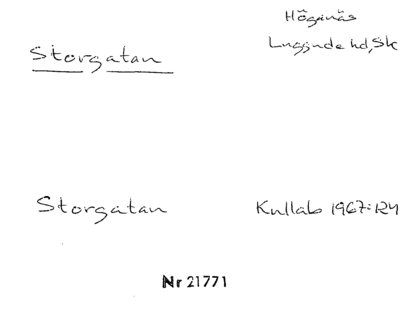 Höganäs
Storgatan
Luggude hd, Sk
Storgatan
Kullab 1967:124
Nr 21771